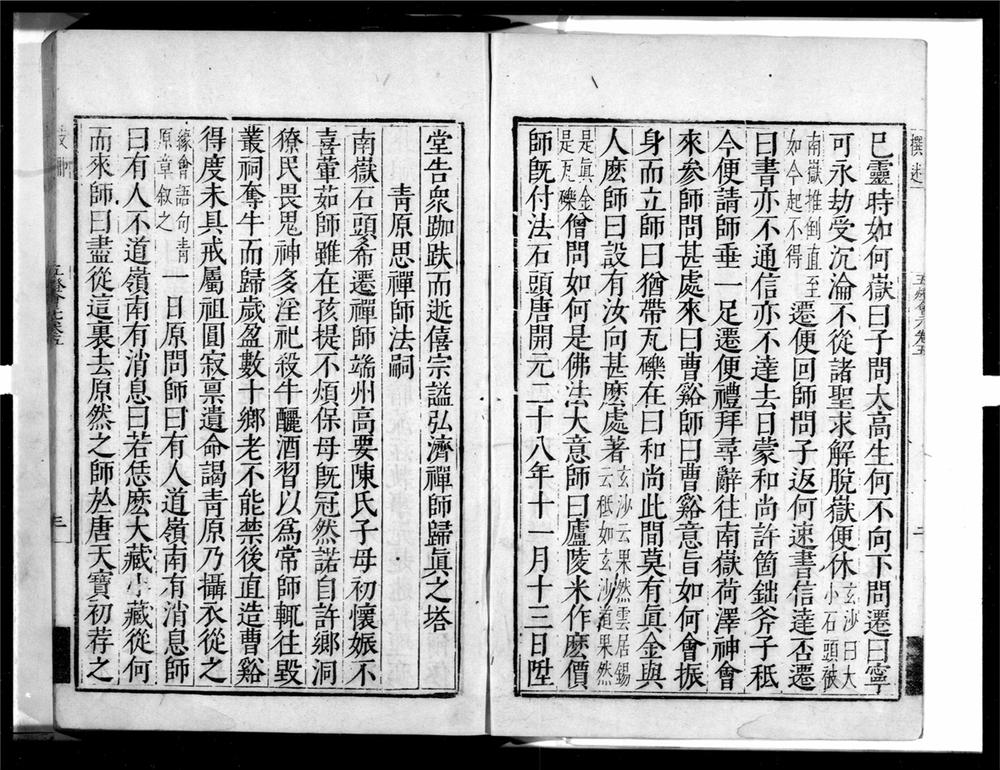 巳靈時如何嶽曰子問太高生何不向下問遷曰寧
可永劫受沉淪不從諸聖求解脫嶽便休玄沙曰大小石頭被
南嶽推倒直至如今起不得遷便回師問子返何速書信達否遷
曰書亦不通信亦不達去日蒙和尚許箇鈯斧子秖
今便請師垂一足遷便禮拜尋辭往南嶽荷澤神會
來參師問甚處來曰曹谿師曰曹谿意旨如何會振
身而立師曰猶帶瓦礫在曰和尚此間莫有眞金與
人麼師曰設有汝向甚麼處著玄沙云果然雲居錫云秖如玄沙道果然
是眞金是瓦礫僧問如何是佛法大意師曰廬陵米作麼價
師旣付法石頭唐開元二十八年十二月十三日陞
堂告衆跏趺而逝僖宗謚弘濟禪師歸眞之塔
青原思禪師法嗣
南嶽石頭希遷禪師端州高要陳氏子母初懷娠不
喜葷茹師雖在孩提不煩保母旣冠然諾自許鄉洞
獠民畏鬼神多淫祀殺牛釃酒習以爲常師輒往毀
叢祠奪牛而歸歲盈數十鄉老不能禁後直造曹谿
得度未具戒屬祖圓寂稟遺命謁青原乃攝衣從之
緣會語句青原章叙之一日原問師曰有人道嶺南有消息師
曰有人不道嶺南有消息曰若恁麼大藏小藏從何
而來師曰盡從這裏去原然之師於唐天寶初荐之
五燈會元卷五
三